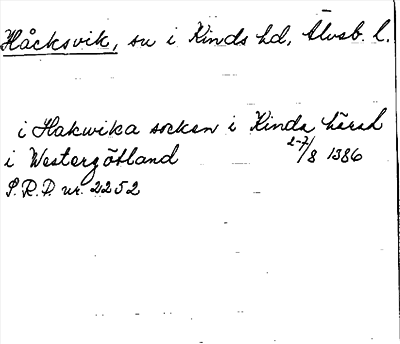 Håcksvik, sn i Kinds hd, Älvsb. l.
i Hakwika socken i Kinda härad
i Westergötland 27/8 1386
S.R.P. nr. 2252